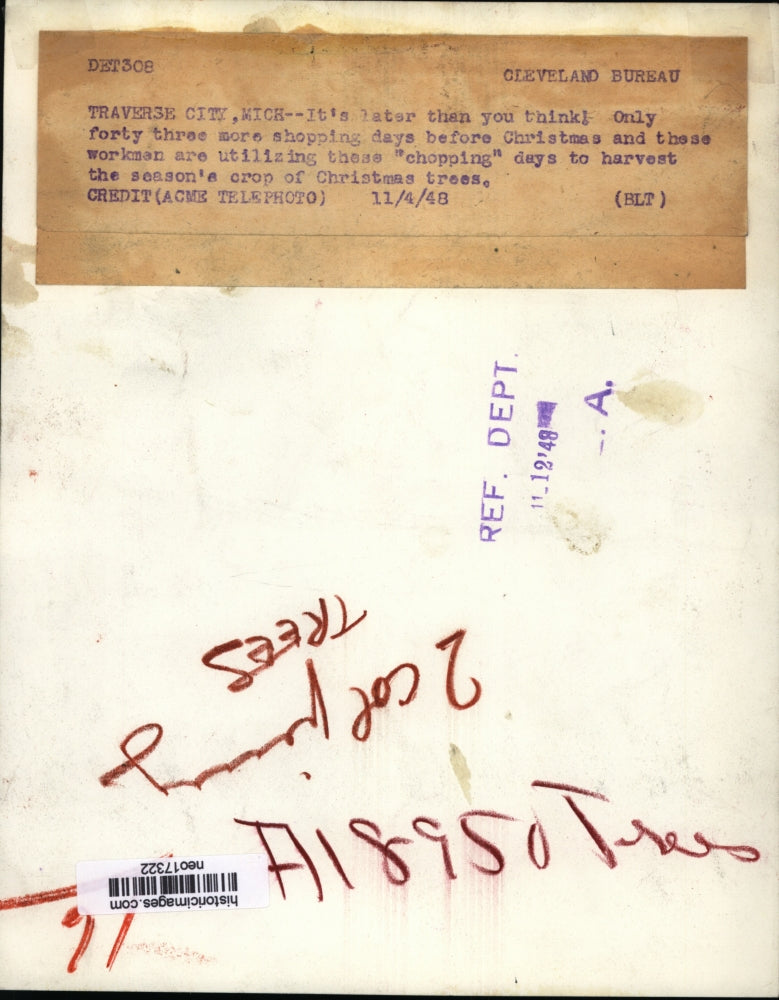 DET308
CLEVELAND BUREAU
TRAVERSE CITY, MICH--It's later than you think! Only
forty three more shopping days before Christmas and these
workmen are utilizing these "chopping" days to harvest
the season's crop of Christmas trees.
CREDIT(ACME TELEPHOTO) 11/4/48 (BLT)
REF. DEPT.
12 '48
A.
TREES
2 col
A18950 Trees
historicimages.com
neo17322